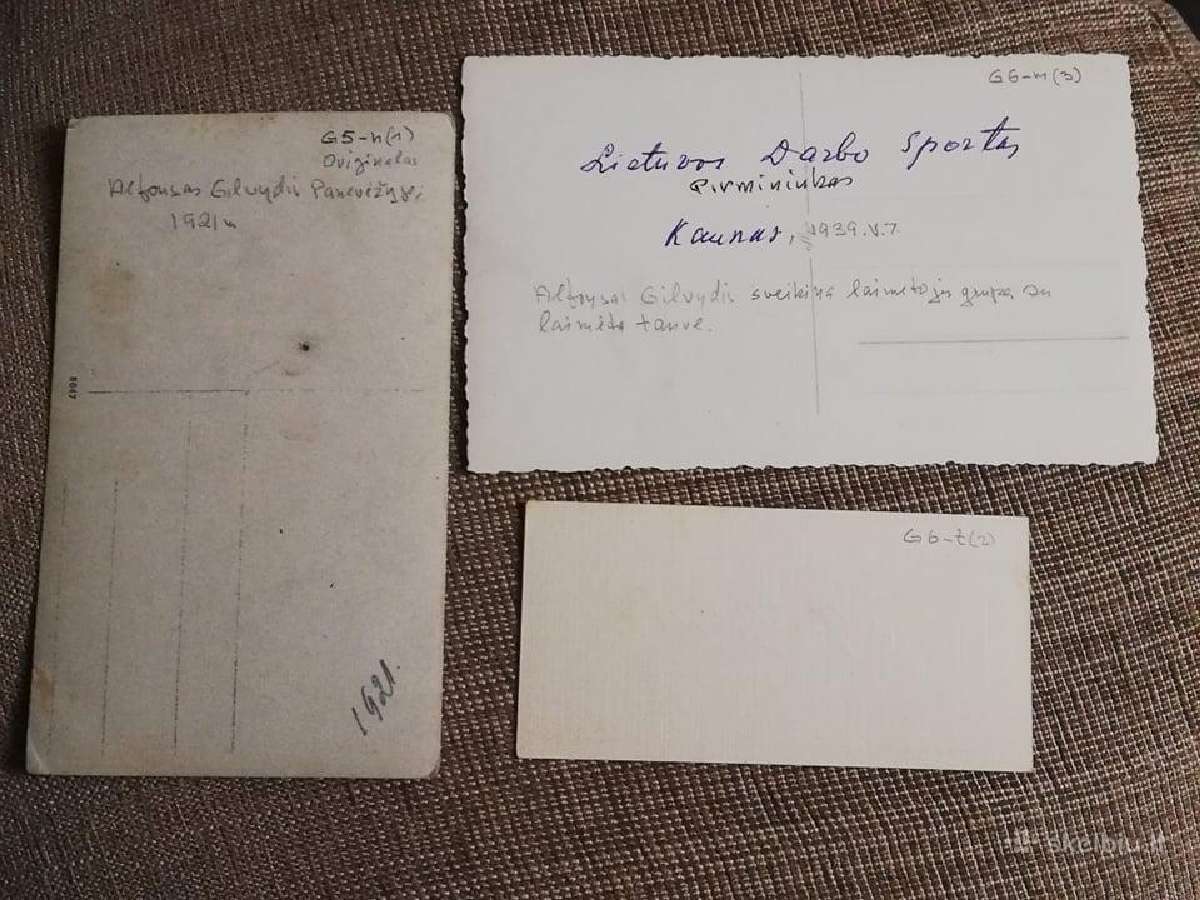 G5-n(1)
Originalas
Alfonsas Gilvydis Panevėžyje,
1921 m
5067
1921.
G6-m(3)
Lietuvos Darbo Sportas
Pirmininkas
Kaunas, 1939.V.7.
Alfonsas Gilvydis sveikina laimėtojų grupę su
laimėta taure.
G6-t(2)
skelbiu.lt